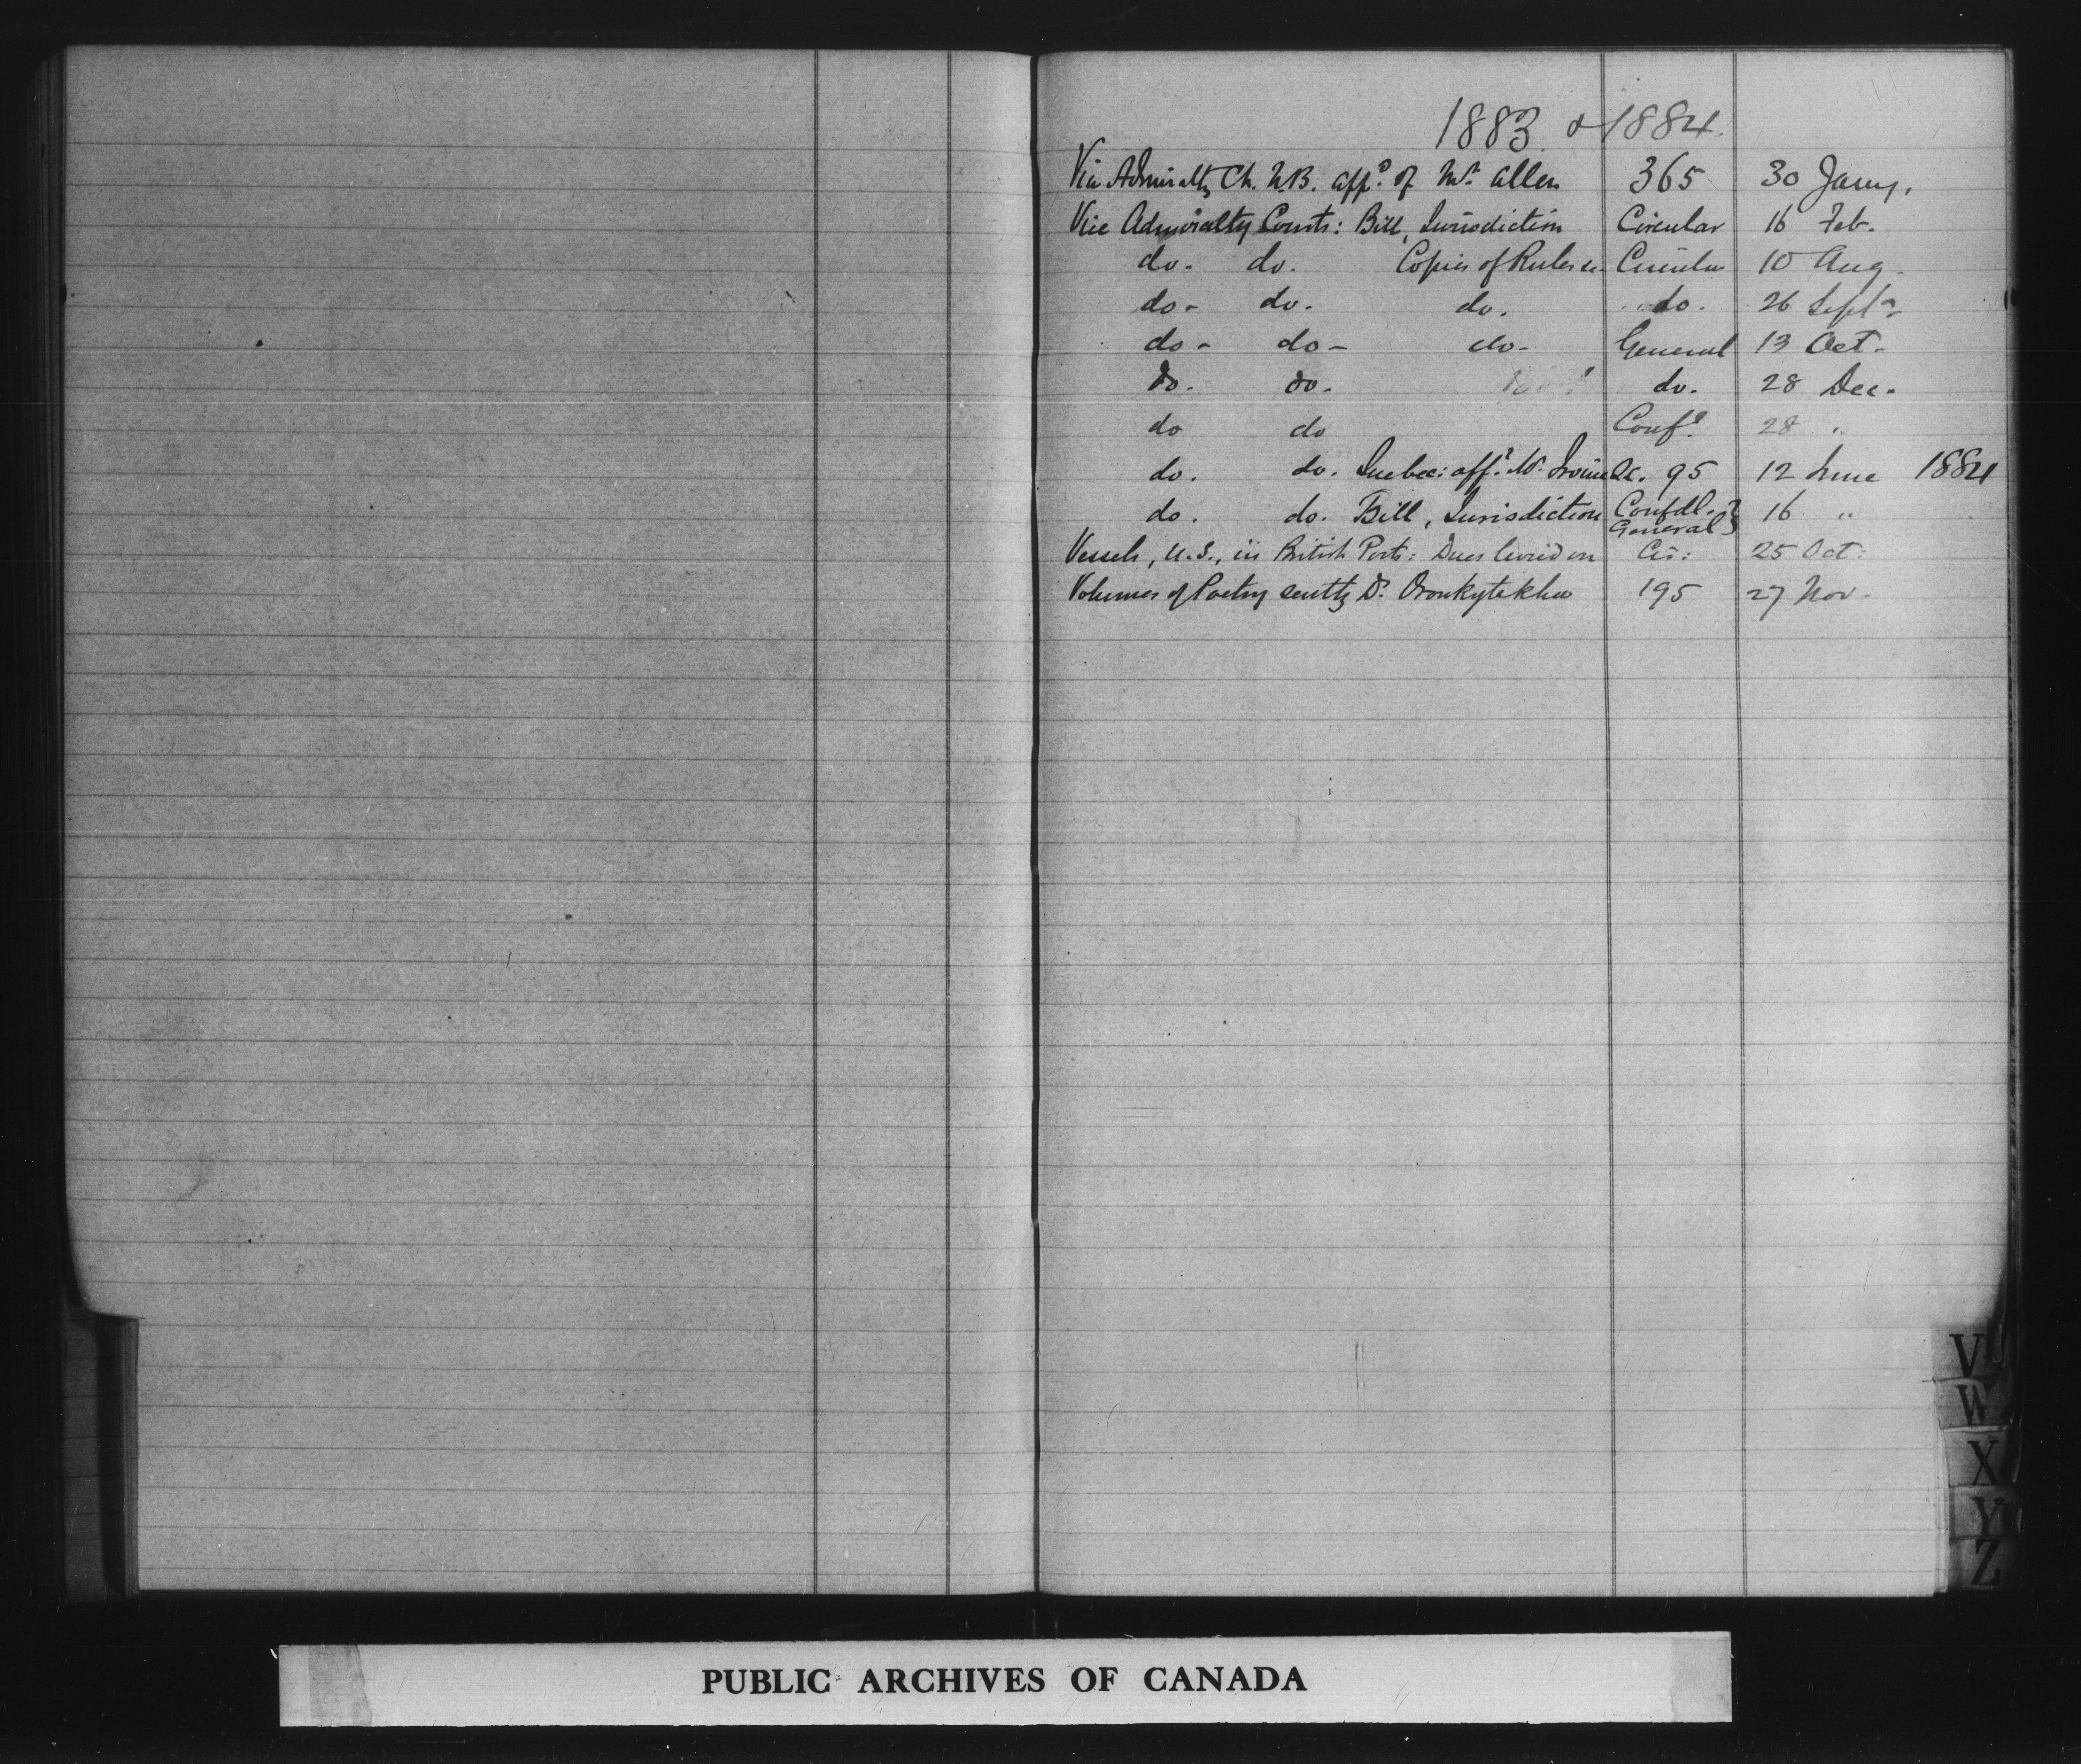 1883 & 1884.
Vice Admiralty Ct. N.B. appt. of Mr. Allen 365 30 Jany.
Vice Admiralty Courts: Bill, Jurisdiction Circular 16 Feb.
do. do. Copies of Rules &c Circular 10 Aug.
do - do. do. do. 26 Septr
do - do - do - General 13 Oct.
do. do. do. 28 Dec.
do do Confl. 28 "
do. do. Quebec: appt. Mr. Irvine Qc. 95 12 June 1884
do. do. Bill, Jurisdiction Confdl. General } 16 "
Vessels, U.S., in British Ports: Dues levied on Cir: 25 Oct:
Volumes of Poetry sent by Dr. Oronhyatekha 195 27 Nov.
V
W
X
Y
Z
PUBLIC ARCHIVES OF CANADA